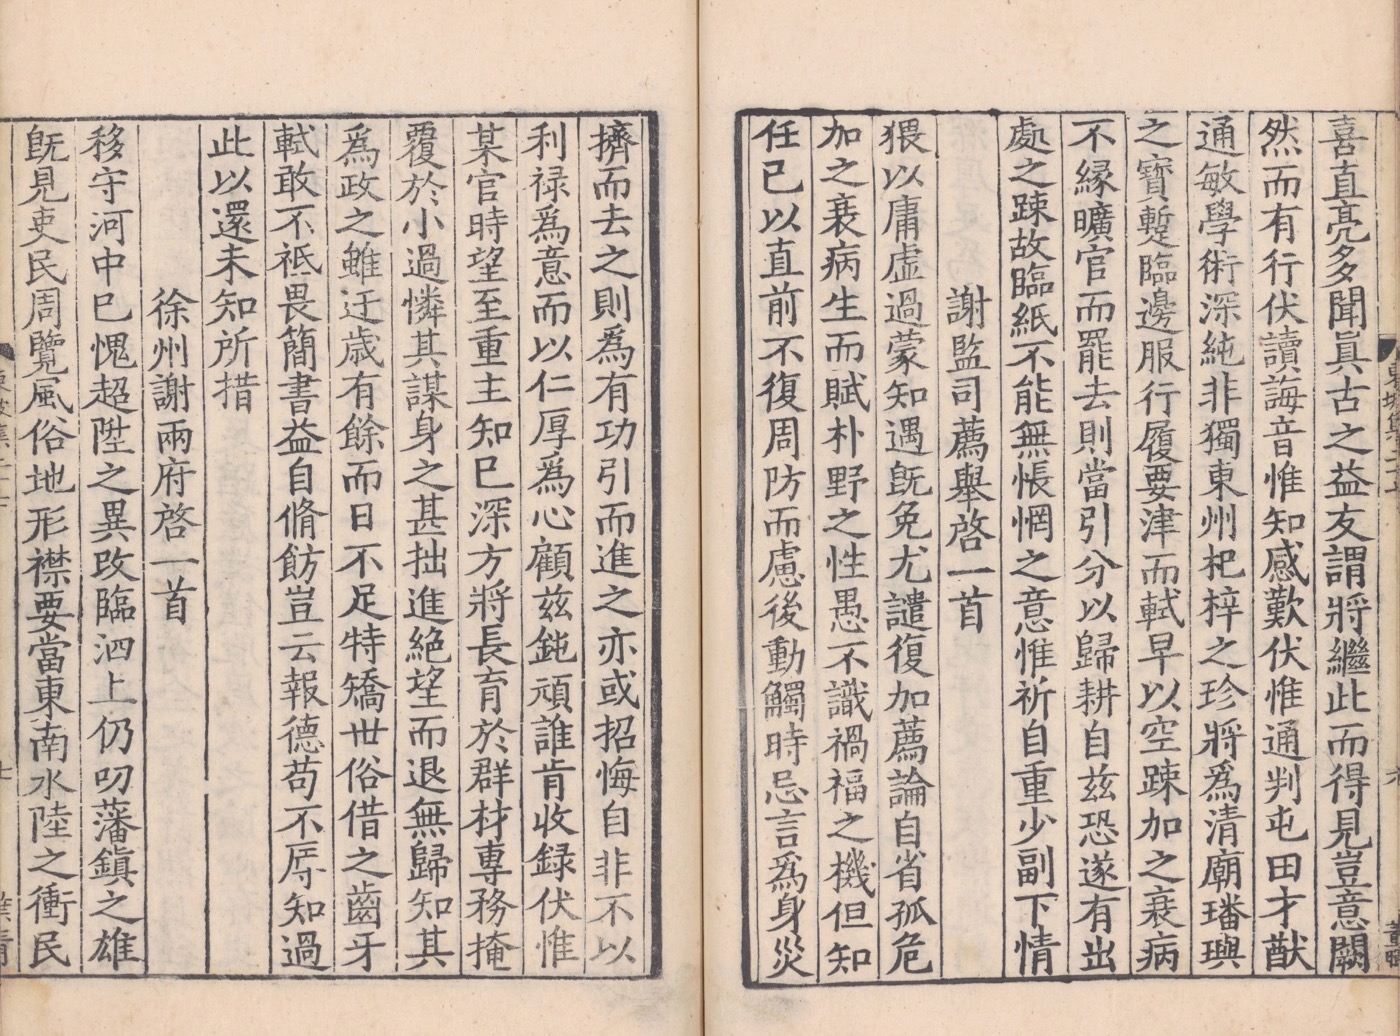 喜直亮多聞眞古之益友謂將繼此而得見豈意闕
然而有行伏讀誨音惟知感歎伏惟通判屯田才猷
通敏學術深純非獨東州杞梓之珍將爲清廟璠璵
之寶蹔臨邊服行履要津而軾早以空踈加之衰病
不縁曠官而罷去則當引分以歸耕自玆恐遂有出
處之踈故臨紙不能無悵惘之意惟祈自重少副下情
謝監司薦舉啓一首
猥以庸虚過蒙知遇旣免尤譴復加薦論自省孤危
加之衰病生而賦朴野之性愚不識禍福之機但知
任己以直前不復周防而慮後動觸時忌言爲身災
擠而去之則爲有功引而進之亦或招悔自非不以
利禄爲意而以仁厚爲心顧玆鈍頑誰肯收録伏惟
某官時望至重主知已深方將長育於群材専務掩
覆於小過憐其謀身之甚拙進絶望而退無歸知其
爲政之雖迂歳有餘而日不足特矯世俗借之齒牙
軾敢不祗畏簡書益自脩飭豈云報德苟不辱知過
此以還未知所措
徐州謝兩府啓一首
移守河中已愧超陞之異改臨泗上仍叨藩鎮之雄
旣見吏民周覽風俗地形襟要當東南水陸之衝民